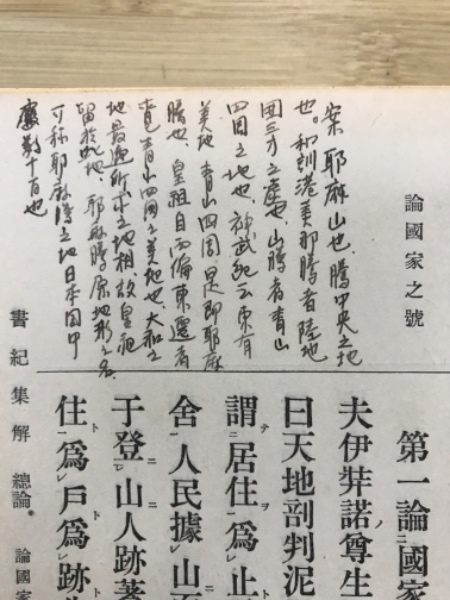 論國家之號
案 耶麻山也、騰中央之地
也。和訓港美那騰者陸地
囲三方之處也、山騰者青山
四囲之地也、神武紀云東有
美地 青山四周、是即耶麻
騰也、皇祖自西偏東遷者
覓青山四周之美地也、大和之
地最適所求之地相、故皇祖
留於此地、耶麻騰原地形之名、
可称耶麻騰之地日本国中
應數十百也
第一論國家
夫伊弉諾尊生
曰天地剖判泥
謂居住爲止
舍人民據山
于登山人跡著
住爲戸爲跡
書紀集解 總論 論國家